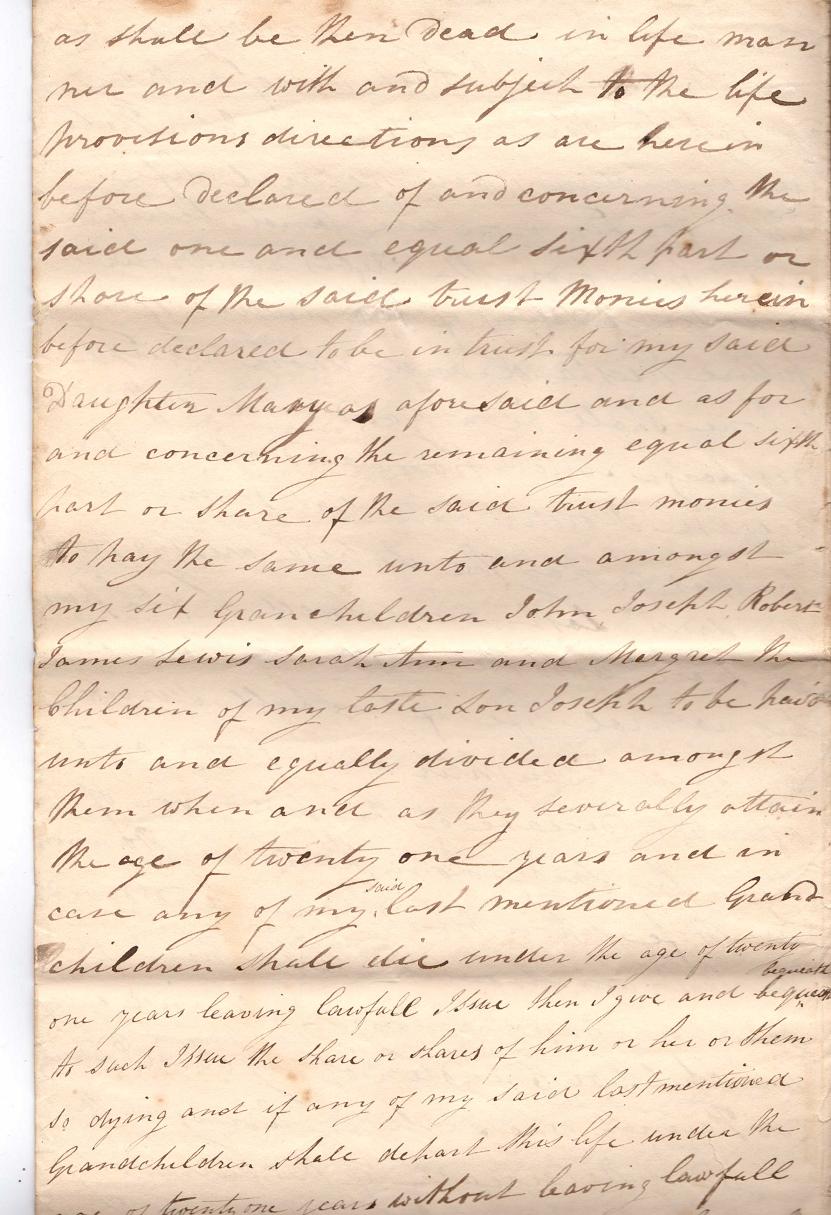 as shall be then Dead in life man
ner and with and subject to the life
provisions directions as are herein
before declared of and concerning the
said one and equal sixth part or
share of the said trust Monies herein
before declared to be in trust for my said
Daughter Mary as aforesaid and as for
and concerning the remaining equal sixth
part or share of the said trust monies
to pay the same unto and amongst
my six Granchildren John Joseph Robert
James Lewis Sarah Ann and Margret the
Children of my late Son Joseph to be paid
unto and equally divided amongst
them when and as they severally attain
the age of twenty one years and in
case any of my said last mentioned Grand
children shall die under the age of twenty
one years leaving lawfull Issue then I give and bequeath
to such Issue the share or shares of him or her or them
so dying and if any of my said last mentioned
Grandchildren shall depart this life under the
age of twenty one years without leaving lawfull